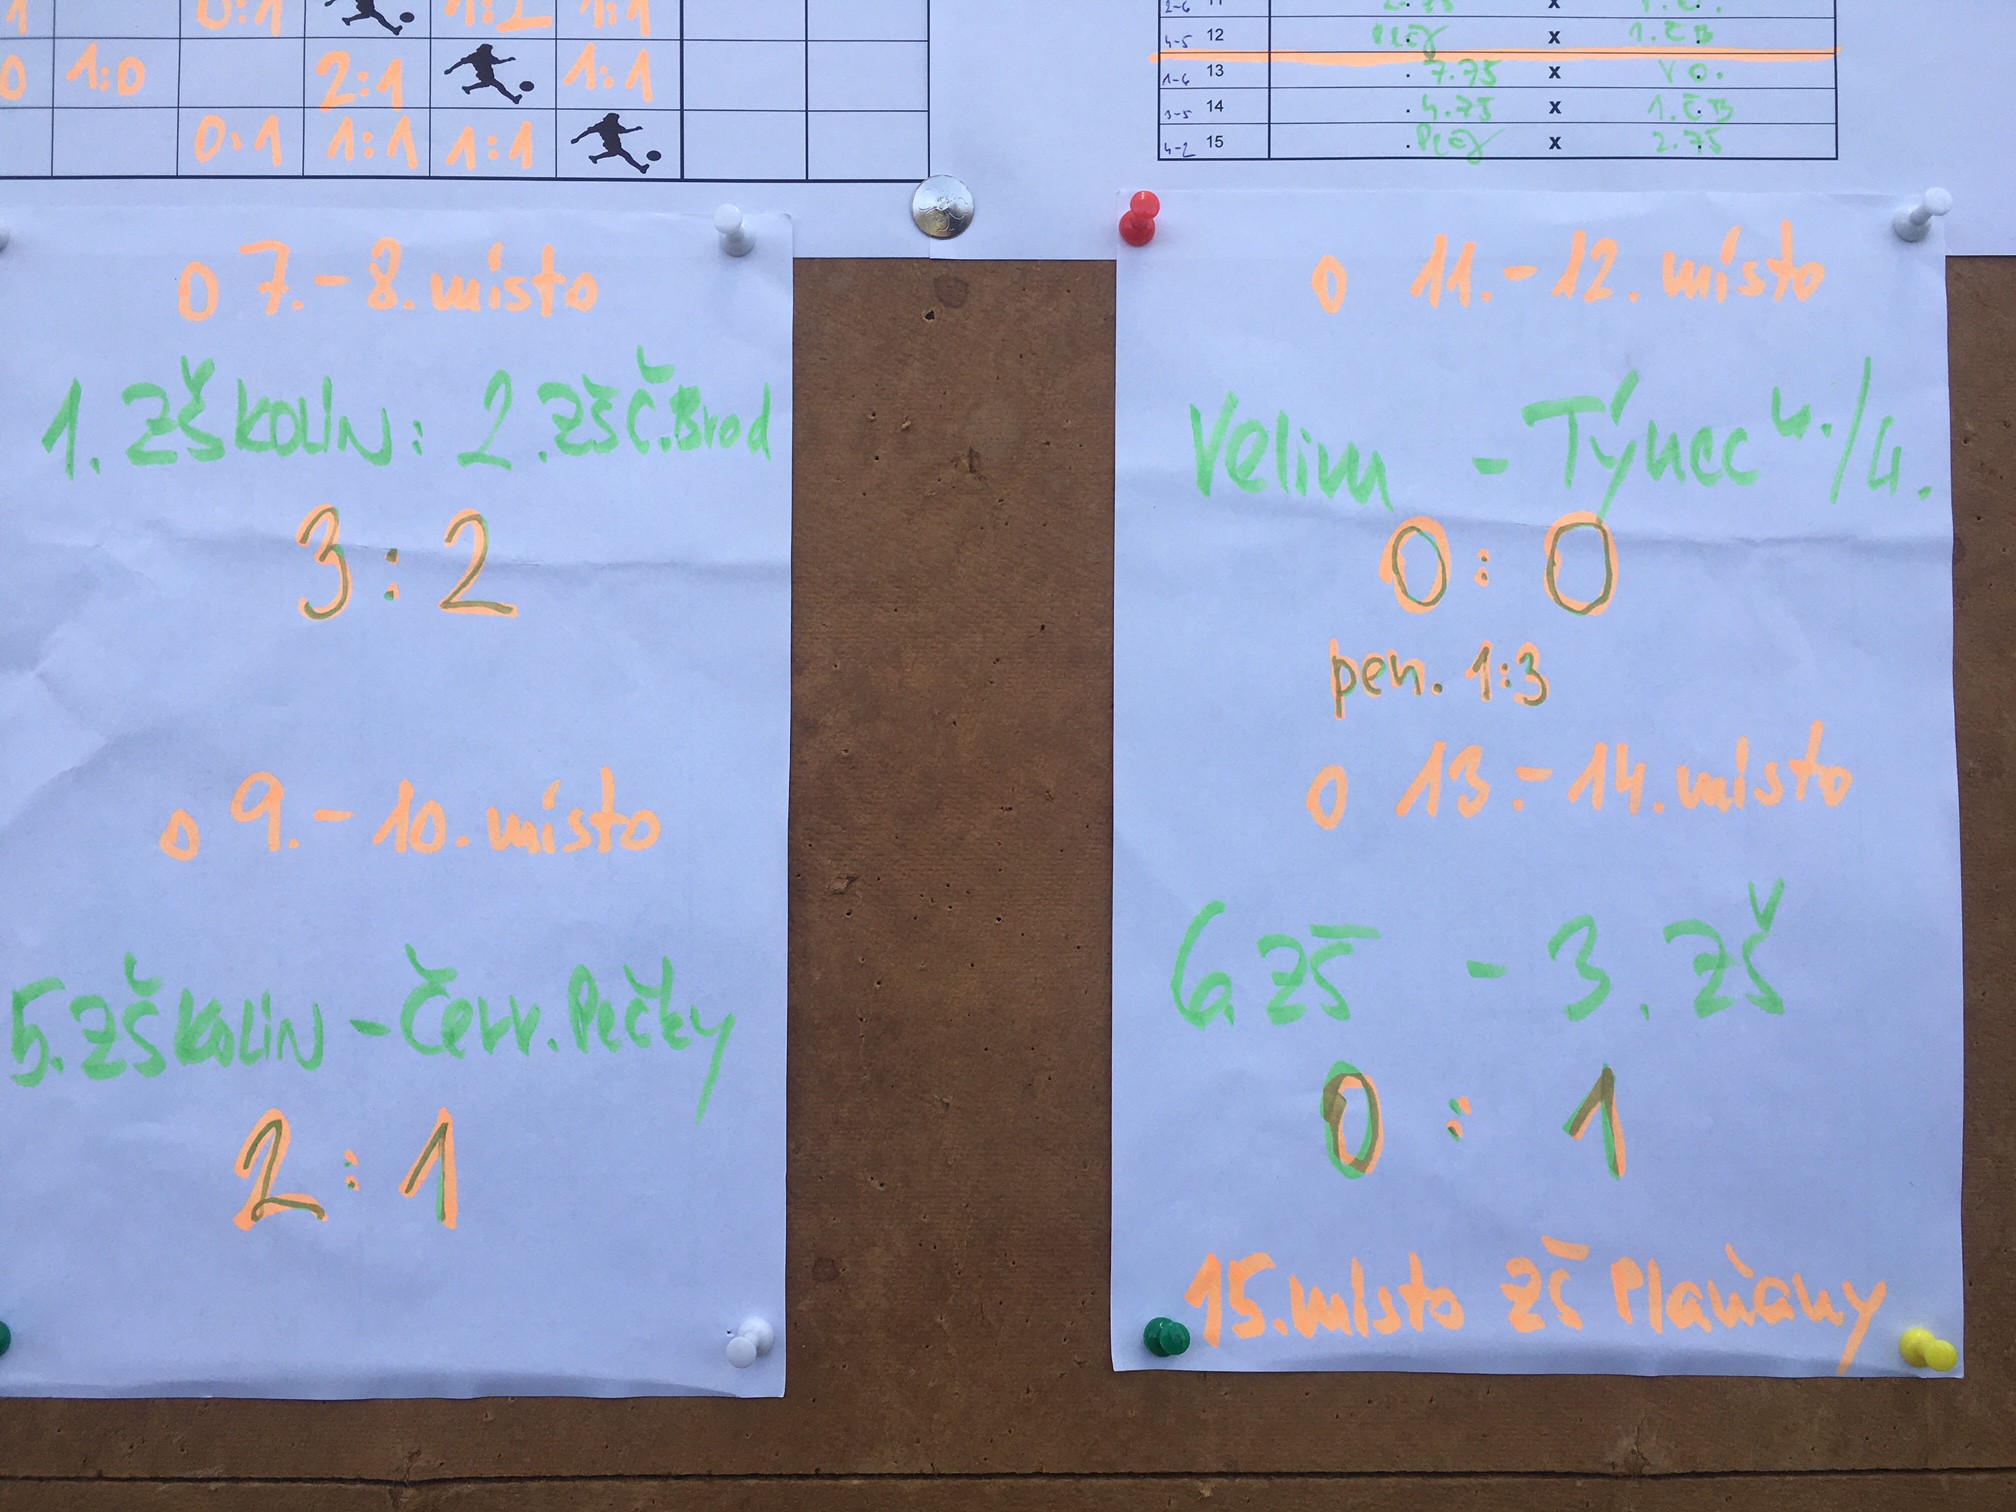 0:1 1:2 1:1
0 1:0 2:1 1:1
0:1 1:1 1:1
2-6 11 x
4-5 12 x 1.ČB
1-6 13 7.75 x VO.
3-5 14 4.75 x 1.ČB
4-2 15 x 2.75
O 7.-8. místo
1. ZŠ KOLÍN : 2. ZŠ Č.Brod
3:2
O 9.-10. místo
5. ZŠ KOLÍN - Červ. Pečky
2:1
O 11.-12. místo
Velim - Týnec n./L.
0:0
pen. 1:3
O 13.-14. místo
6. ZŠ - 3. ZŠ
0:1
15. místo ZŠ Plaňany